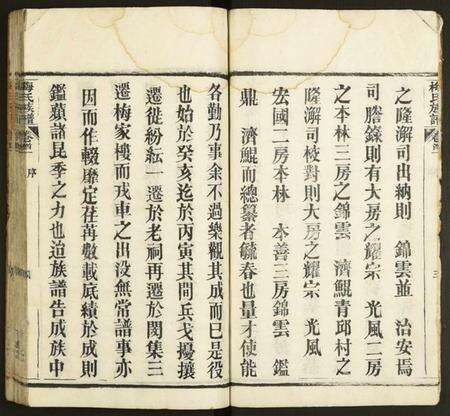 梅氏族譜
卷首
之隆瀚司出納則 錦雲並 治安焉
司謄錄則有大房之耀宗 光風二房
之本林三房之錦雲 濟鯤青邱村之
隆瀚司校對則大房之耀宗 光風
宏國二房本林 本善三房錦雲 鑑
鼎 濟鯤而總纂者毓春也量才使能
各勤乃事余不過樂觀其成而已是役
也始於癸亥迄於丙寅其間兵戈擾攘
遷徙紛紜一遷於老祠再遷於閔集三
遷梅家樓而戎車之出沒無常譜事亦
因而作輟靡定荏苒數載底績於成則
鑑蘋諸昆季之力也迨族譜告成族中
梅氏族譜
卷首
序